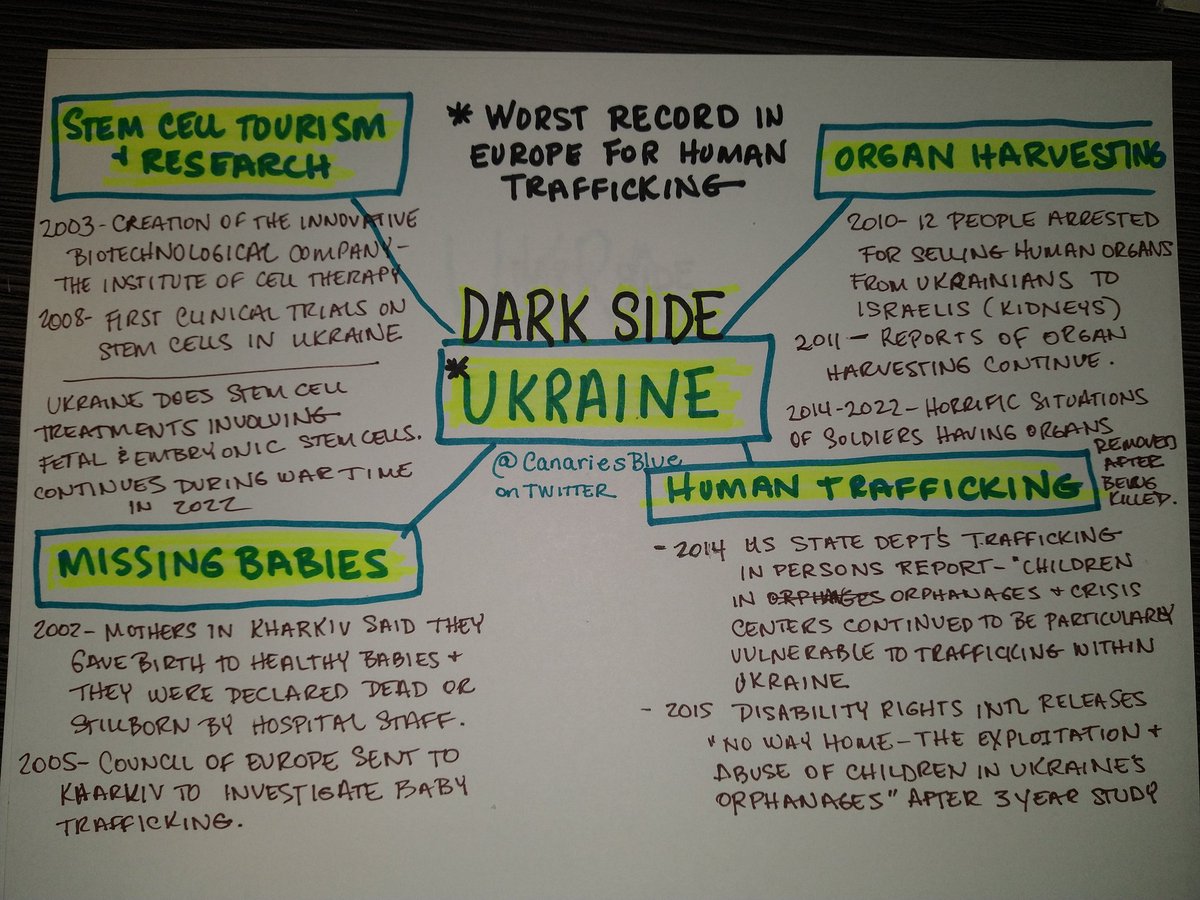 STEM CELL TOURISM
& RESEARCH
2003- CREATION OF THE INNOVATIVE
BIOTECHNOLOGICAL COMPANY-
THE INSTITUTE OF CELL THERAPY
2008- FIRST CLINICAL TRIALS ON
STEM CELLS IN UKRAINE
UKRAINE DOES STEM CELL
TREATMENTS INVOLVING
FETAL & EMBRYONIC STEM CELLS.
CONTINUES DURING WAR TIME
IN 2022
* WORST RECORD IN
EUROPE FOR HUMAN
TRAFFICKING
ORGAN HARVESTING
2010- 12 PEOPLE ARRESTED
FOR SELLING HUMAN ORGANS
FROM UKRAINIANS TO
ISRAELIS (KIDNEYS)
2011- REPORTS OF ORGAN
HARVESTING CONTINUE.
2014-2022- HORRIFIC SITUATIONS
OF SOLDIERS HAVING ORGANS
REMOVED
AFTER
BEING
KILLED.
DARK SIDE
* UKRAINE
@CanariesBlue
on TWITTER
MISSING BABIES
2002- MOTHERS IN KHARKIV SAID THEY
GAVE BIRTH TO HEALTHY BABIES &
THEY WERE DECLARED DEAD OR
STILLBORN BY HOSPITAL STAFF.
2005- COUNCIL OF EUROPE SENT TO
KHARKIV TO INVESTIGATE BABY
TRAFFICKING.
HUMAN TRAFFICKING
- 2014 US STATE DEPT'S TRAFFICKING
IN PERSONS REPORT- "CHILDREN
IN ORPHAGES ORPHANAGES & CRISIS
CENTERS CONTINUED TO BE PARTICULARLY
VULNERABLE TO TRAFFICKING WITHIN
UKRAINE
- 2015 DISABILITY RIGHTS INTL RELEASES
"NO WAY HOME- THE EXPLOITATION &
ABUSE OF CHILDREN IN UKRAINE'S
ORPHANAGES" AFTER 3 YEAR STUDY